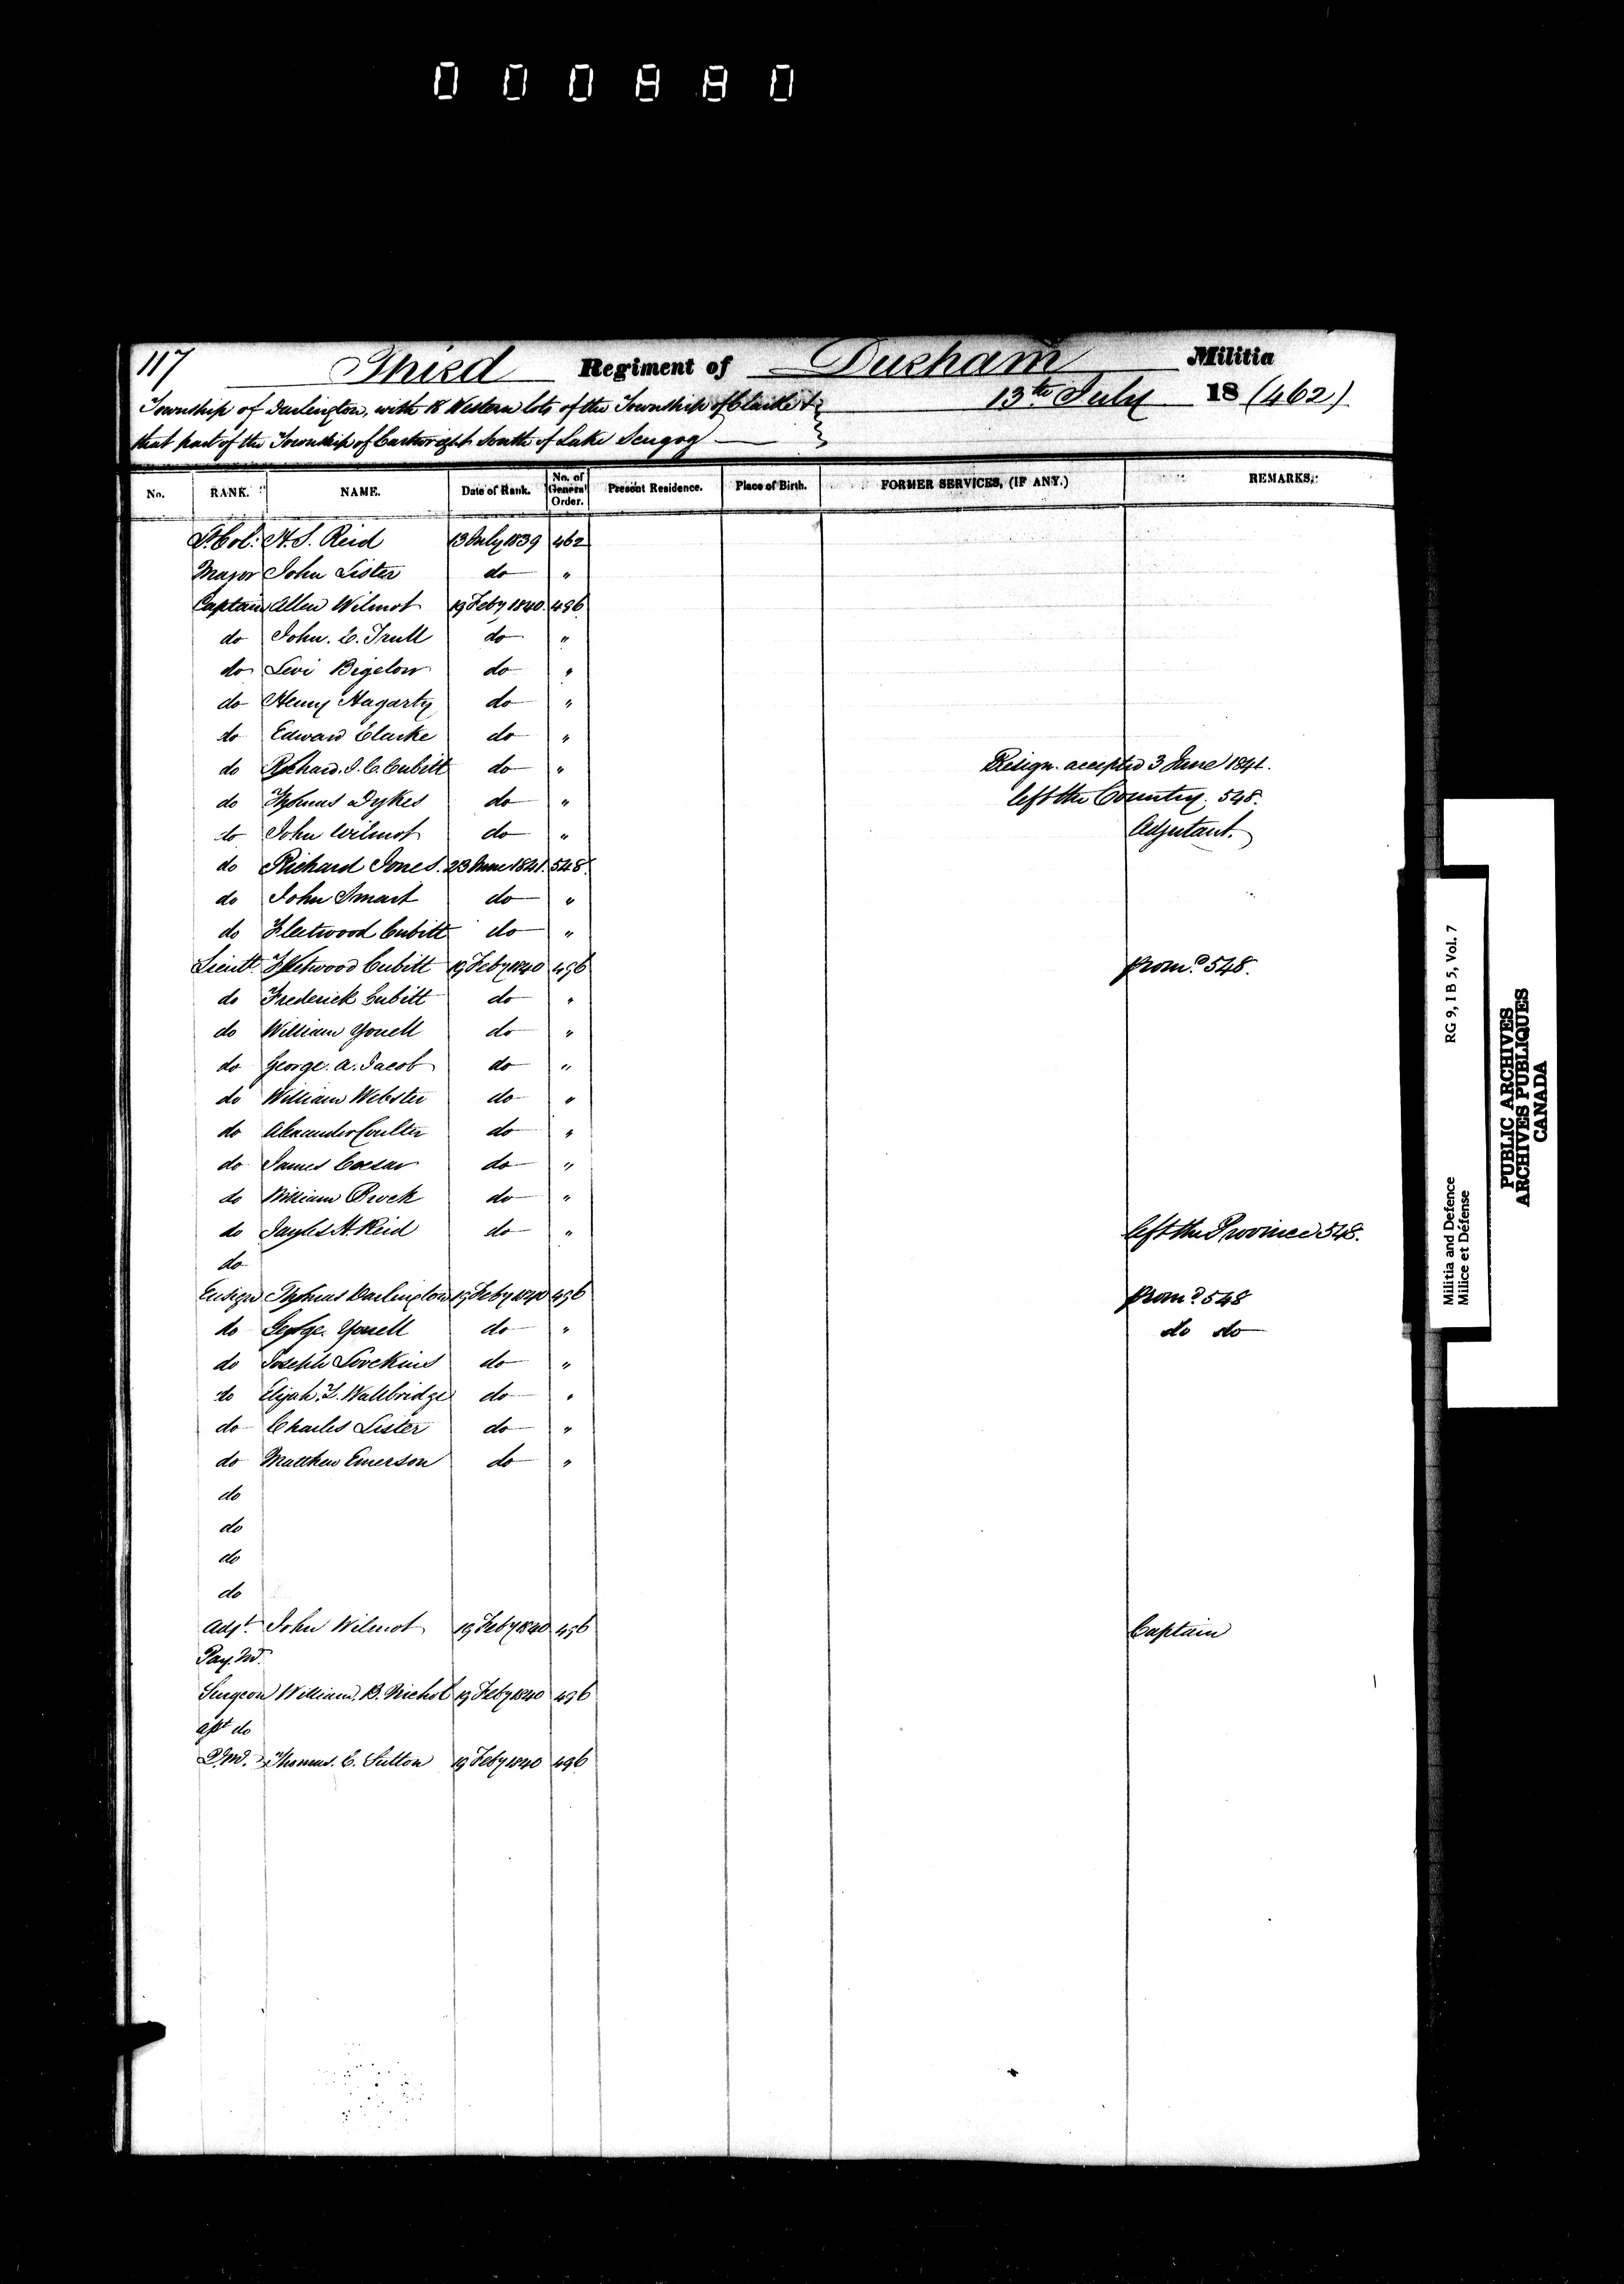 000880
117
Third Regiment of Durham Militia
Township of Darlington, with 18 Western lots of the Township of Clarke &
13th July 18 (462)
that part of the Township of Cartwright South of Lake Scugog
No. RANK. NAME. Date of Rank. No. of General Order. Present Residence. Place of Birth. FORMER SERVICES, (IF ANY.) REMARKS.
Lt. Col: A. S. Reid 13 July 1839 462
Major John Lister do "
Captain Allen Wilmot 19 Feby 1840. 496
do John. C. Trull do "
do Levi Bigelow do "
do Henry Hagarty do "
do Edward Clarke do "
do Richard. I. C. Cubitt do " Resign. accepted 3 June 1841.
do Thomas Dykes do " left the Country. 548.
do John Wilmot do " Adjutant.
do Richard Jones. 23 June 1841. 548.
do John Smart do "
do Fleetwood Cubitt do "
Lieutt Fleetwood Cubitt 19 Feby 1840 496 prom.d 548.
do Frederick Cubitt do "
do William Youell do "
do George. A. Jacob do "
do William Webster do "
do Alexander Coulter do "
do James Caesar do "
do William Brock do "
do H. Reid do " left the Province 548.
do
Ensign Thomas Darlington 19 Feby 1840 496 prom.d 548
do George Youell do " do do
do Joseph Lovekins do "
do Elijah. L. Wallbridge do "
do Charles Lister do "
do Matthew Emerson do "
do
do
do
do
Adjt. John Wilmot 19 Feby 1840 496 Captain
Pay. Mr.
Surgeon William. B. Nichol 19 Feby 1840 496
Asst do
Q.M. Thomas. C. Sutton 19 Feby 1840 496
RG 9, I B 5, Vol. 7
Militia and Defence
Milice et Défense
PUBLIC ARCHIVES
ARCHIVES PUBLIQUES
CANADA